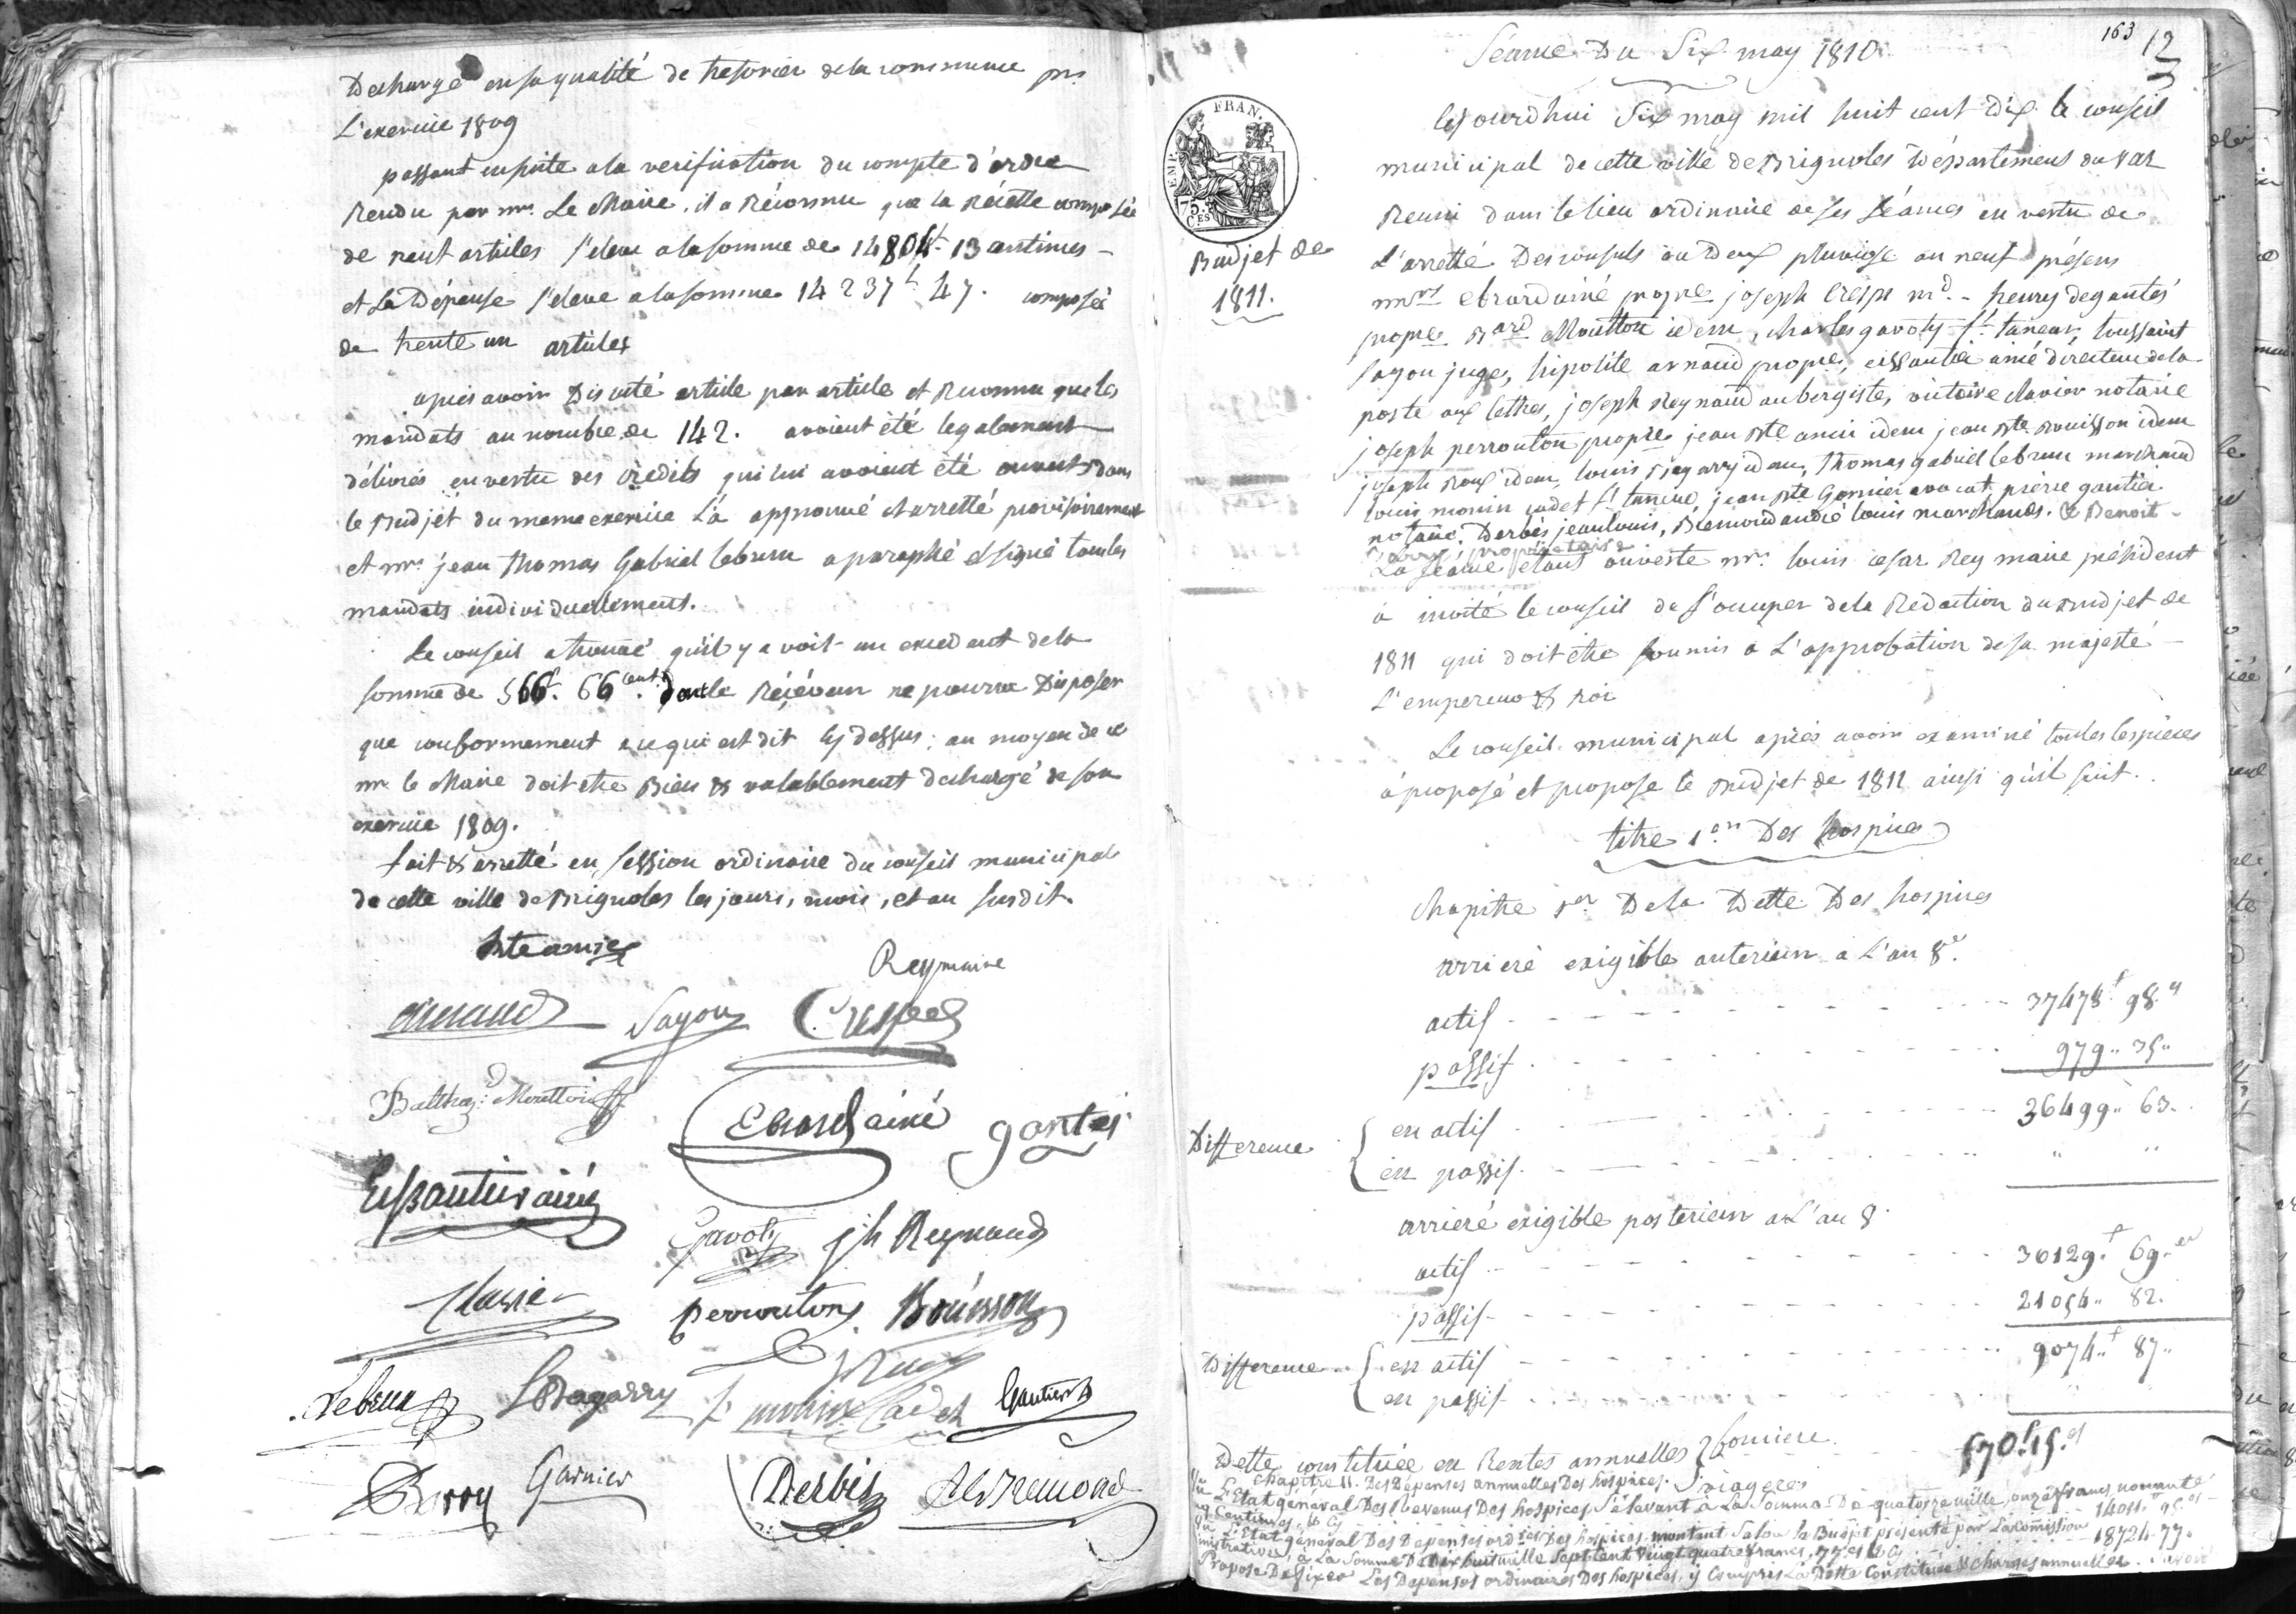 Decharge en sa qualité de tresorier de la commune pr.
L'exercice 1809
passant ensuite a la verification du compte d'ordre
Rendu par mr. Le Maire, il a Réconnu que la Récette composée
de neuf articles s'eleve a la somme de 14804 f. 13 centimes -
et La Dépense s'eleve a la somme 14237 f. 47. composée
de trente un articles
apres avoir Discuté article par article et Reconnu que les
mandats au nombre de 142. avoient été legalement
délivrés en vertu des crédits qui lui avoient été ouverts dans
le Budjét du meme exercice L'a approuvé et arretté provisoirement
et mr. jean Thomas Gabriel lebrun a paraphé et signé tous les
mandats individuellement.
Le conseil a trouvé qu'il y avoit un excedent de la
somme de 566 f. 66 cent. dont le Récéveur ne pourra Disposer
que conformement a ce qui est dit cy dessus; au moyen de ce
mr. le Maire doit etre Bien & valablement dechargé de son
exercice 1809.
fait & arretté en session ordinaire du conseil municipal
de cette ville de Brignoles les jours, mois, et an susdit.
Bte amic
Rey maire
arnaud Sayou Crespe
Balthaz.d Moutton
Ebrard ainé gantés
Eissautier ainé
Gavoty jh Reynaud
Clavier perrouton Bouisson
J Roux
Lebrun L Bagarry L. monin Cadet Gautier
Barry Garnier Derbès A L Bremond
163
12
Séance Du Six may 1810.
FRAN.
EMP.
75
CES
Budjet de
1811.
Cejourd'hui Six may mil huit cent dix le conseil
municipal de cette ville de Brignoles Département du Var
Reuni dans le lieu ordinaire de ses Séances en vertu de
L'arretté Des consuls du Deux pluviose an neuf présens
mrs. ebrard ainé propre joseph Crespe md. - henry de gantés
propre Bard Moutton idem, charles gavoty ft. taneur, toussaint
sayou juge, hipolite arnaud propre, eissautier ainé directeur de la
poste aux lettres, joseph Reynaud aubergiste, victoire clavier notaire
joseph perrouton propre jean Bte amic idem jean Bte Bouisson idem
joseph Roux idem, louis Bagarry idem, Thomas gabriel lebrun marchand
louis monin cadet ft. taneur, jean Bte Garnier avocat pierre gautier
notaire, Derbès jean louis, Bremond andré louis marchands. & Benoit -
Barry, propriétaire
La Séance étant ouverte mr. louis cesar Rey maire président
a invité le conseil de s'occuper de la Rédaction du Budjet de
1811 qui doit etre soumis a L'approbation de sa majesté -
L'empereur & roi
Le conseil municipal après avoir examiné toutes les pieces
a proposé et propose le Budjet de 1811 ainsi qu'il suit.
titre 1er. Des hospices
Chapitre 1er De la Dette Des hospices
arrieré exigible anterieur a L'an 8e.
actif - - - 37478 f 98 c
passif - - - 979 " 35 "
Difference { en actif - - - 36499 " 63.
en passif - - - " "
arrieré exigible posterieur a L'an 8
actif - - - 30129 f 69 c
passif - - - 21054 " 82.
Difference { en actif - - - 9074 f 87 "
en passif - - -
Dette constituée en Rentes annuelles { fonciere 570 f 15 c
viageres
Chapitre II. Des Dépenses annuelles Des hospices.
Vu L'Etat général Des Revenus Des hospices s'élevant à La Somme De quatorze mille, onze francs, nonante
cinq Centimes, & Cy - - - 14011. 95 c
Vu L'Etat général Des Depenses ordres Des hospices, montant selon le Budjet présenté par La Commission
ministrative, à La Somme De Dix huit mille Sept Cent Vingt quatre francs, 77 c & Cy - - - 18724. 77.
Propose De fixer Les Depenses ordinaires Des hospices, y Compris La Dette Constituée & charges annuelles, Savoir